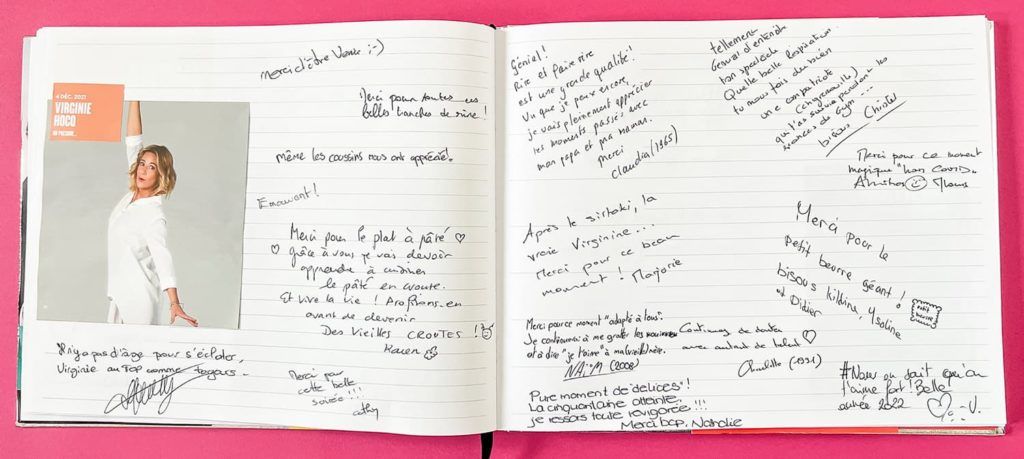 4 DÉC. 2021
VIRGINIE
HOCQ
OU PRESQUE...
Merci d'être Venue :-)
Merci pour toutes ces
belles tranches de rire !
Même les coussins nous ont apprécié.
Emouvant !
Merci pour le plat à pâté ♡
♡ Grâce à vous je vais devoir
apprendre à cuisiner
le pâté en croute.
Et Vive la vie ! Profitons-en
avant de devenir
Des Vieilles CROUTES !
Karen
Il n'y a pas d'âge pour s'éclater,
Virginie au TOP comme toujours.
Merci par
cette belle
soirée !!!
cathy
Génial !
Rire et faire rire
est une grande qualité !
Vu que je pense encore,
je vais pleinement apprécier
les moments passés avec
mon papa et ma maman.
Merci
Claudia (1965)
tellement
Genial d'entendre
ton spectacle
Quelle belle respiration
tu nous fais du bien
une compatriote
qui t'as suivie pendant les
séances de gym...
bisous
Merci pour ce moment
magique "non Covid".
Après le sirtaki, la
vraie Virginie...
Merci pour ce beau
moment ! Marjorie
Merci pour le
Petit beurre géant !
bisous Ysaline
et Didier
petit
beurre
Merci pour ce moment "adapté à tous".
Je continuerai à me gratter les
et à dire "je t'aime" à ma vieillerie.
NAÏM (2008)
Continuez de
avec autant de talent ♡
Charlotte (1991)
Pure moment de "délices" !
La cinquantaine atteinte,
je ressors toute revigorée !!!
Merci bcp, Nathalie
#Nous on sait qu'on
t'aime fort ! Belle
année 2022
♡ V.